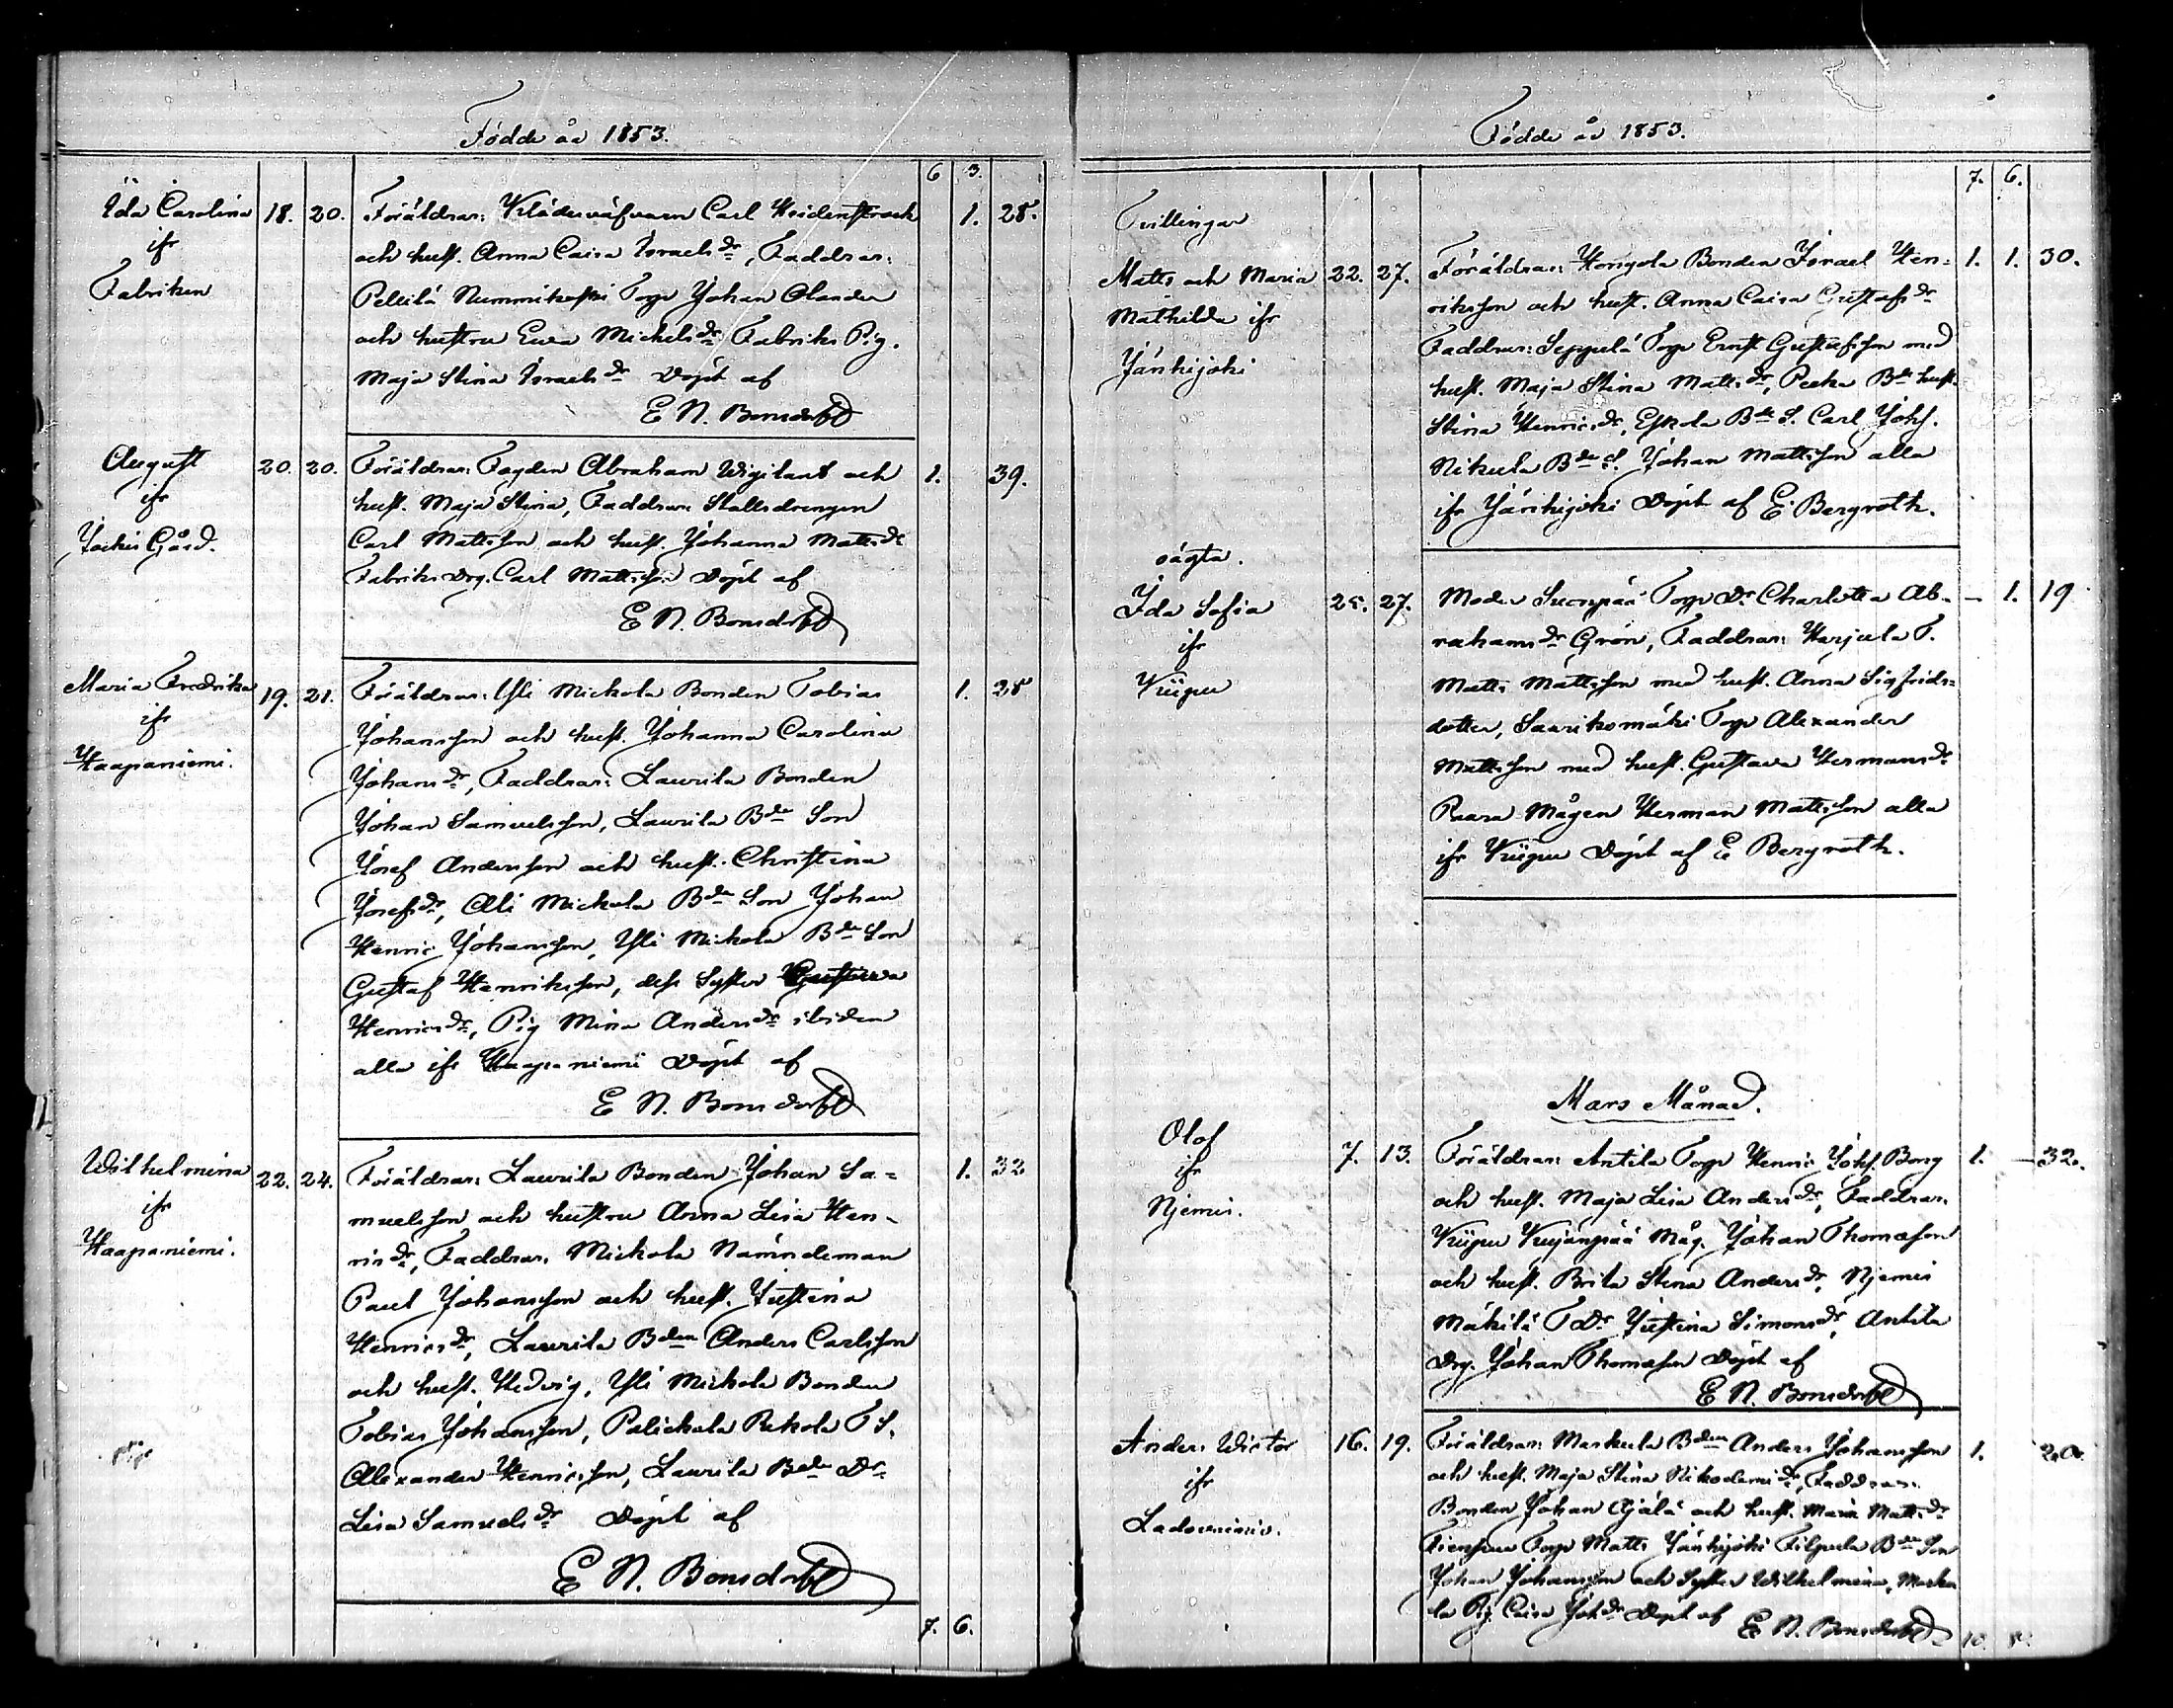 Födde år 1853.
6 3.
Ida Carolina 18. 20. Föräldrar: Klädesväfvaren Carl Heidenstrock 1. 28.
ifr och hust. Anna Caisa Israelsdr, Faddrar:
Fabriken Torp Johan Olander
och hustru Eva Michelsdr Fabriks Pig.
Maja Stina Israelsdr Döpt af
E N. Bonsdorff
August 20. 20. Föräldrar: Fogden Abraham Wigilant och 1. 39.
ifr hust. Maja Stina, Faddrar: Stallsdrengen
Jockis Gård. Carl Mattsson och hust. Johanna Mattsdr
Fabriks Drg. Carl Mattsson Döpt af
E N. Bonsdorff
Maria Fredrika 19. 21. Föräldrar: Yli Mickola Bonden Tobias 1. 28
ifr Johansson och hust. Johanna Carolina
Haapaniemi. Johansdr, Faddrar: Laurila Bonden
Johan Samuelsson, Laurila Bde Son
Josef Andersson och hust. Christina
Josefsdr, Ali Mickola Bde Son Johan
Henric Johansson, Yli Mickola Bde Son
Gustaf Henriksson, dess Syster Gustava
Henricsdr, Pig Mina Andersdr ibidem
alla ifr Haapaniemi Döpt af
E N. Bonsdorff
Wilhelmina 22. 24. Föräldrar: Laurila Bonden Johan Sa= 1. 32
ifr muelsson och hustru Anna Lisa Hen-
Haapaniemi. ricsdr, Faddrar: Mickola Nämndeman
Paul Johansson och hust. Justina
Henricsdr, Laurila Bden Anders Carlsson
och hust. Hedvig, Yli Mickola Bonden
Tobias Johansson, Palickala Rekola T S.
Alexander Henricsson, Laurila Bde Dr
Lisa Samuelsdr Döpt af
E N. Bonsdorff
7. 6.
Födde år 1853.
7. 6.
Tvillingar
Matts och Maria 22. 27. Föräldrar: Hongola Bonden Israel Hen= 1. 1. 30.
Mathilda ifr riksson och hust. Anna Caisa Gustafsdr
Jänhijoki Faddrar: Seppälä Torp Ernst Gustafsson med
hust. Maja Stina Mattsdr, Bde hust.
Stina Henricsdr, Eskola Bde S. Carl Johs.
Nikula Bde S. Johan Mattsson alla
ifr Jänhijoki Döpt af E. Bergroth.
oägta.
Ida Sofia 25. 27. Moder Suonpää Torp Dr Charlotta Ab- - 1. 19
ifr rahamsdr Grön, Faddrar: Harjula T.
Wiipu Matts Mattsson med hust. Anna Sigfrids=
dotter, Saarikomäki Torp Alexander
Mattsson med hust. Gustava Hermansdr
Paara Mågen Herman Mattsson alla
ifr Döpt af E Bergroth.
Mars Månad.
Olof 7. 13. Föräldrar: Antila Torp Henric Johs. Borg 1. - 32.
ifr och hust. Maja Lisa Andersdr, Faddrar:
Njemis. Kujanpää Måg. Johan Thomasson
och hust. Brita Stina Andersdr, Njemis
Mäkilä T Dr Justina Simonsdr, Antila
Drg. Johan Thomasson Döpt af
E N. Bonsdorff
Anders Wictor 16. 19. Föräldrar: Markula Bden Anders Johansson 1. 20.
ifr och hust. Maja Stina Nikodemusdr, Faddrar:
Bonden Johan Äjälä och hust. Maria Mattsdr
Torp Matts Jänhijoki Filpula Bde Son
Johan Johansson och Syster Wilhelmina, Marku
la Pig. Caisa Johdr Döpt af E N. Bonsdorff
10.